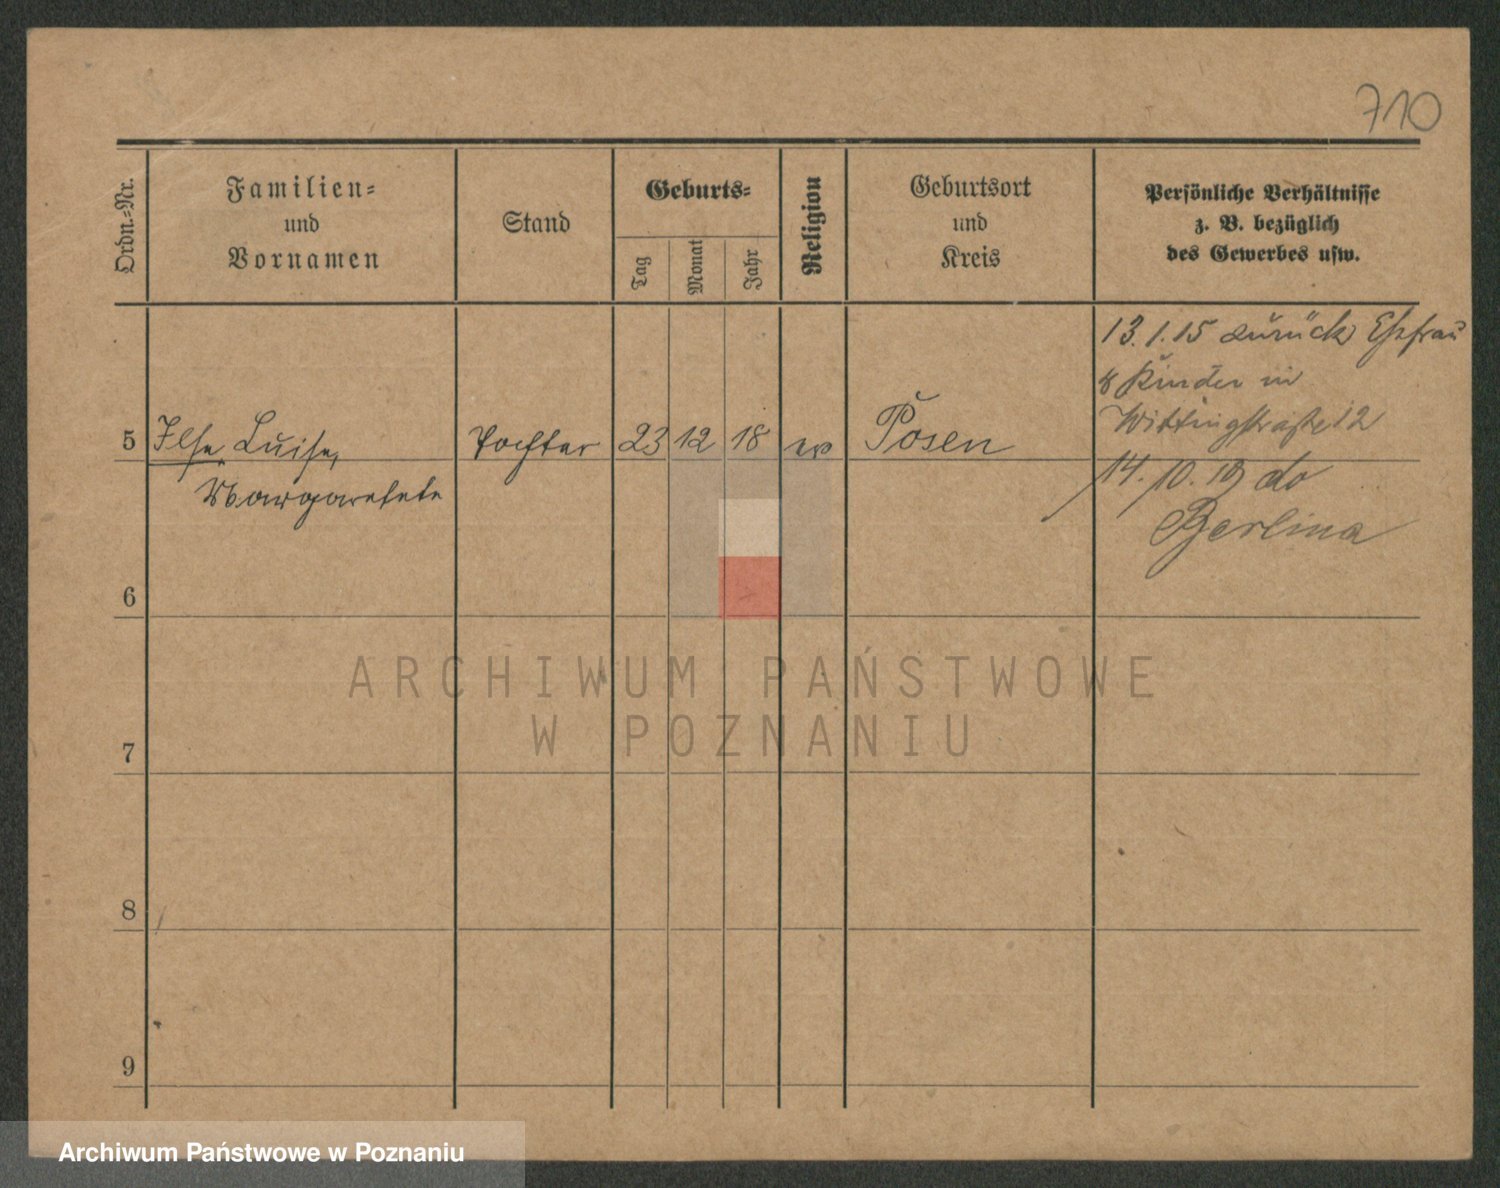 710
Ordn.=Nr.
Familien=
und
Vornamen
Stand
Geburts=
Tag
Monat
Jahr
Religion
Geburtsort
und
Kreis
Persönliche Verhältnisse
z. B. bezüglich
des Gewerbes usw.
13.1.15 zurück Ehefrau
& Kinder in
Wittingstraße 12
5 Ilse Luise, Tochter 23 12 18 ev Posen
Margarethe
14.10.19 do
Berlina
6
7
8
9
ARCHIWUM PAŃSTWOWE
W POZNANIU
Archiwum Państwowe w Poznaniu